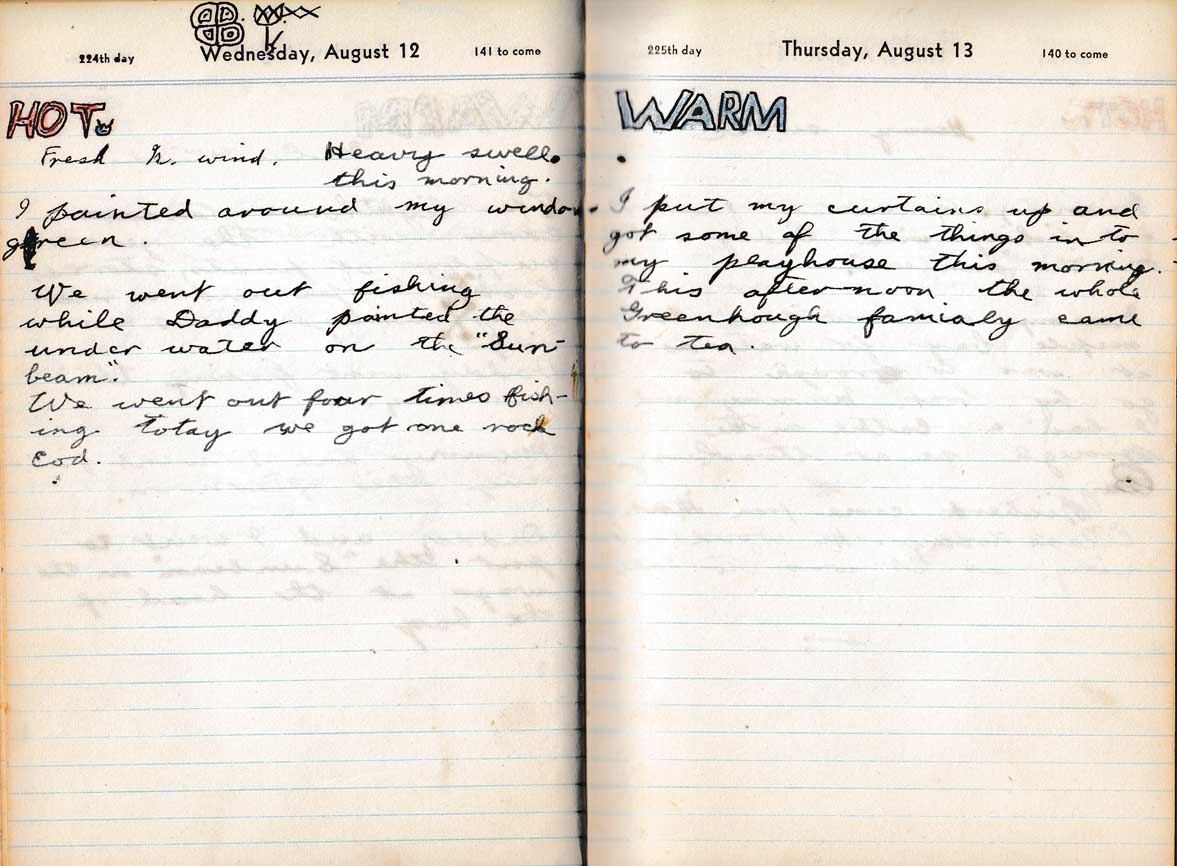 224th day
Wednesday, August 12
141 to come
HOT
Fresh N. wind. Heavy swell
this morning.
I painted around my window
green.
We went out fishing
while Daddy painted the
under water on the "Sun-
beam".
We went out four times fish-
ing totay we got one rock
cod.
225th day
Thursday, August 13
140 to come
WARM
I put my curtains up and
got some of the things in to
my playhouse this morning.
This afternoon the whole
Greenhough famialy came
to tea.